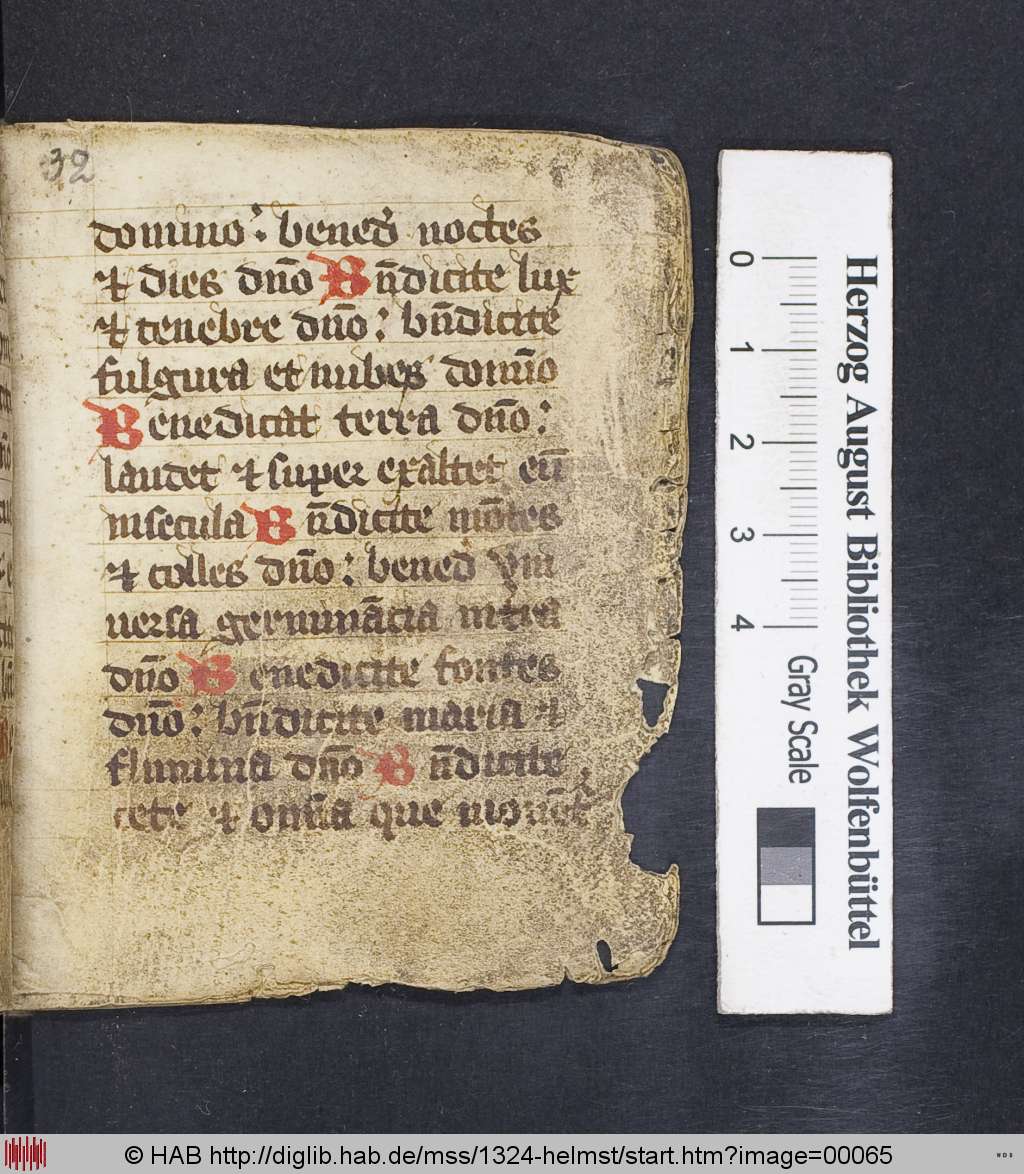 32
domino : bened noctes
⁊ dies dn̄o Bn̄dicite lux
⁊ tenebre dn̄o : bn̄dicite
fulgura et nubes domīo
Benedicat terra dn̄o :
laudet ⁊ super exaltet eū
insecula Bn̄dicite mōtes
⁊ colles dn̄o : bened vni
uersa germinācia intrͣa
dn̄o Benedicite fontes
dn̄o : bn̄dicite maria ⁊
flumina dn̄o Bn̄dicite
cete ⁊ om̄ia que mouēt͛
0 1 2 3 4
Gray Scale
Herzog August Bibliothek Wolfenbüttel
© HAB http://diglib.hab.de/mss/1324-helmst/start.htm?image=00065